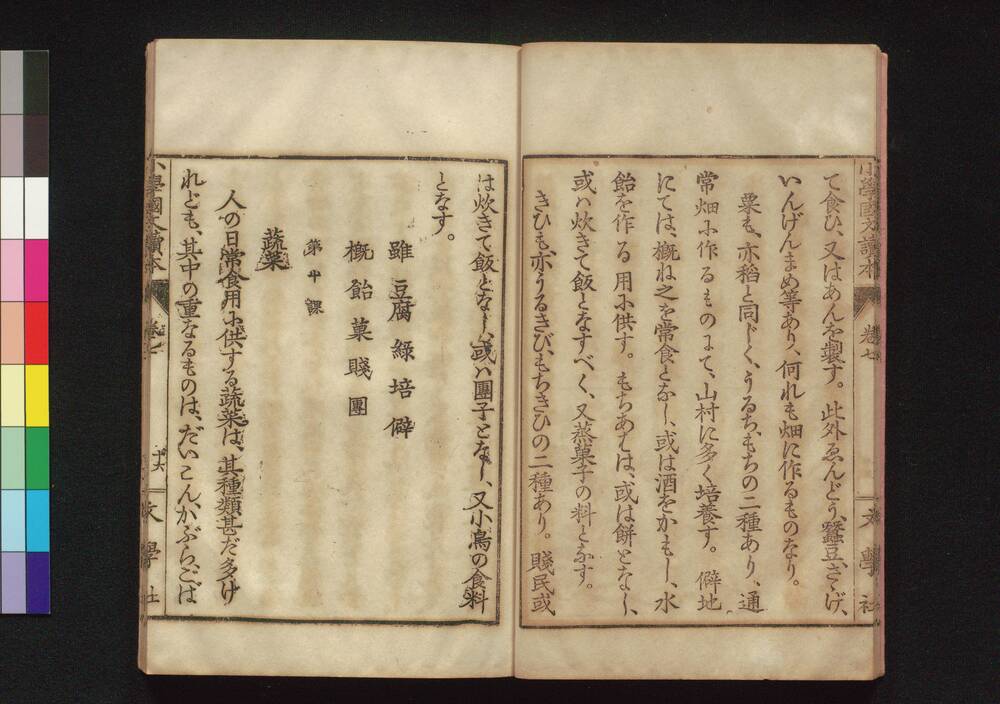 小學國文讀本
卷七
文學社
て食ひ、又はあんを製す。此外ゑんどう、蠶豆、さゝげ、
いんげんまめ等あり、何れも畑に作るものなり。
粟も、亦稻と同じく、うるち、もちの二種あり、通
常畑に作るものにて、山村に多く培養す。僻地
にては、概ね之を常食となし、或は酒をかもし、水
飴を作る用に供す。もちあわは、或は餅となし、
或ハ炊きて飯となすべく、又蒸菓子の料となす。
きひも亦うるきび、もちきひの二種あり。賤民或
は炊きて飯となし、或ハ團子となし、又小鳥の食料
となす。
雖 豆腐 綠 培 僻
概 飴 菓 賤 團
第十課
蔬菜
人の日常食用に供する蔬菜は、其種類甚だ多け
れども、其中の重なるものは、だいこん、かぶら、ごば
小學國文讀本
卷七
十六
文學社